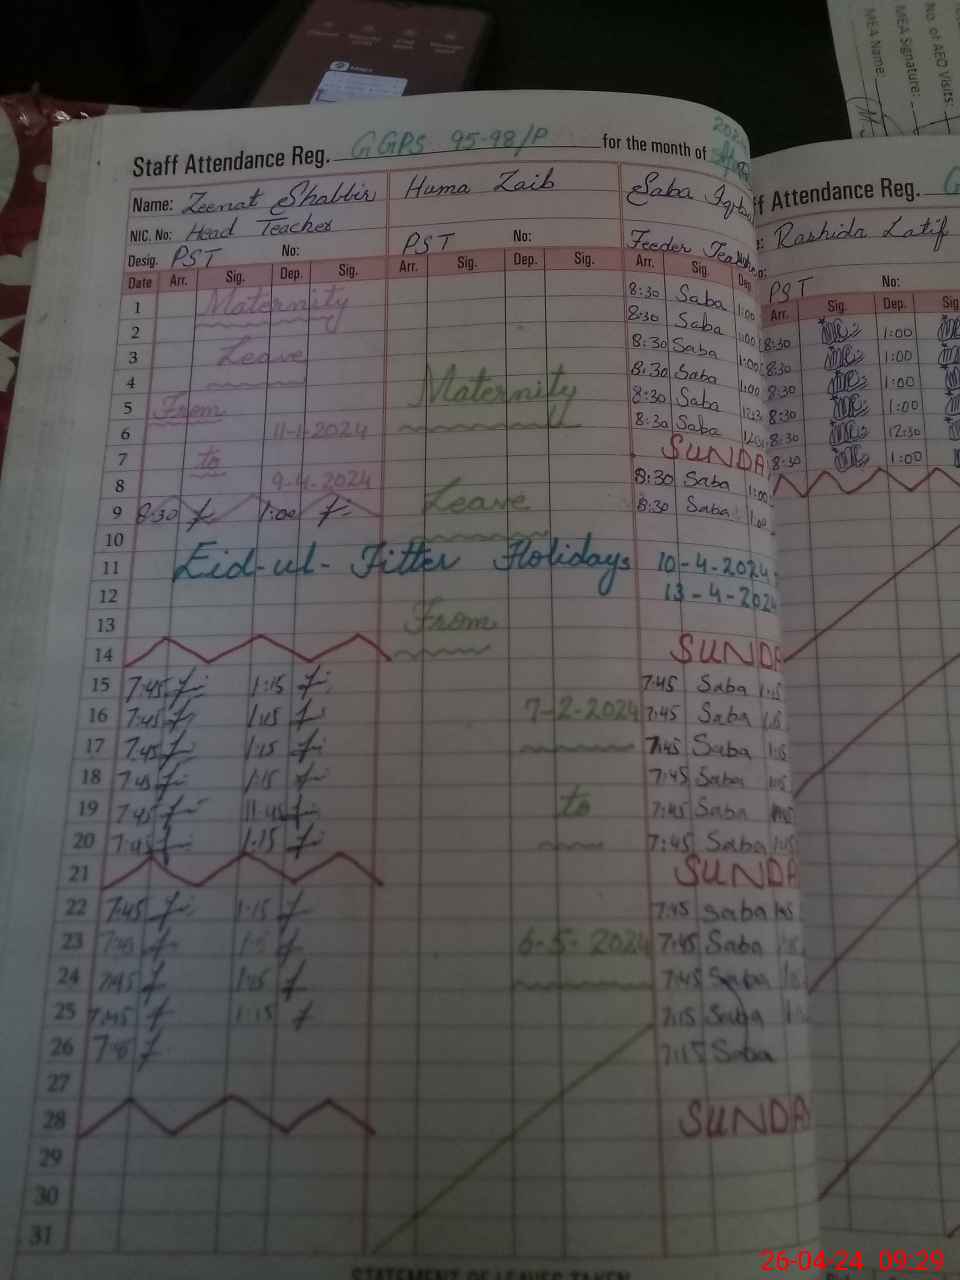 No. of AEO Visits:
MEA Signature:
MEA Name:
Staff Attendance Reg. GGPS 95-98/P for the month of
2024
Name: Zeenat Shabbir Huma Zaib Saba Iqbal
NIC. No: Head Teacher
Desig. PST No: PST No: Feeder Teacher
Date Arr. Sig. Dep. Sig. Arr. Sig. Dep. Sig. Arr. Sig. Dep
1 Maternity 8:30 Saba 1:00
2 8:30 Saba 1:00
3 Leave 8:30 Saba 1:00
4 Maternity 8:30 Saba 1:00
5 From 8:30 Saba
6 11-1-2024 8:30 Saba
7 to SUNDA
8 9-4-2024 Leave 8:30 Saba 1:00
9 8:30 1:00 8:30 Saba 1:00
10
11 Eid-ul-Fitter Holidays 10-4-2024
12 13-4-2024
13 From
14 SUNDA
15 7:45 1:15 7:45 Saba 1:15
16 7:45 1:15 7-2-2024 7:45 Saba
17 7:45 1:15 7:45 Saba 1:15
18 7:45 1:15 7:45 Saba
19 7:45 11:45 to 7:45 Saba
20 7:45 1:15 7:45 Saba
21 SUNDA
22 7:45 1:15 7:45 Saba
23 7:45 6-5-2024 7:45 Saba
24 7:45 7:45 Saba
25 7:45 1:15 7:15 Saba
26 7:15 Saba
27
28 SUNDA
29
30
31
STATEMENT OF LEAVES TAKEN
ff Attendance Reg. G
Rashida Latif
PST No:
Arr. Sig. Dep. Sig
8:30 1:00
8:30 1:00
8:30 1:00
8:30 1:00
8:30 12:30
8:30 1:00
26-04-24 09:29